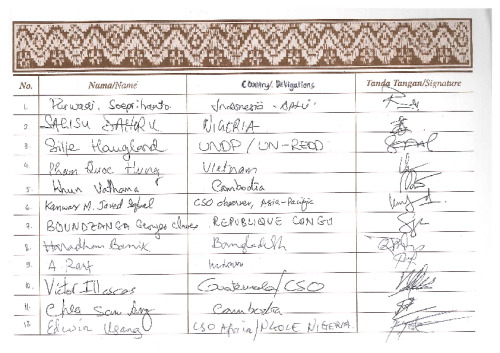 No. Nama/Name Country/Delegations Tanda Tangan/Signature
1. Purwadi Soeprihanto Indonesia - APHI
2. SALISU DAHIRU NIGERIA
3. Silje Haugland UNDP / UN-REDD
4. Pham Quoc Hung Vietnam
5. Khun Vathana Cambodia
6. Kanwar M. Javed Iqbal CSO observer, Asia-Pacific
7. BOUNDZANGA Georges Claver REPUBLIQUE CONGO
8. Haradhan Banik Bangladesh
9. A
10. Victor Illescas Guatemala/CSO
11. Chea Sam Ang Cambodia
12. Edwin CSO Africa/NGOCE NIGERIA.